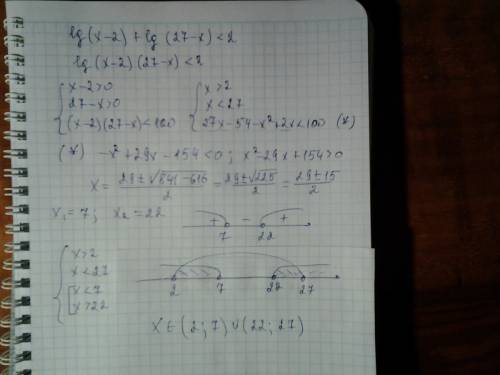 lg(x-2)+lg(27-x)<2
lg(x-2)(27-x)<2
{ x-2>0
27-x>0
(x-2)(27-x)<100
{ x>2
x<27
27x-54-x²+2x<100 (*)
(*) -x²+29x-154<0; x²-29x+154>0
x= (29±√841-616)/2 = (29±√225)/2 = (29±15)/2
x₁=7; x₂=22
+ - +
7 22
{ x>2
x<27
[ x<7
x>22
2 7 22 27
x∈(2;7)∪(22;27)